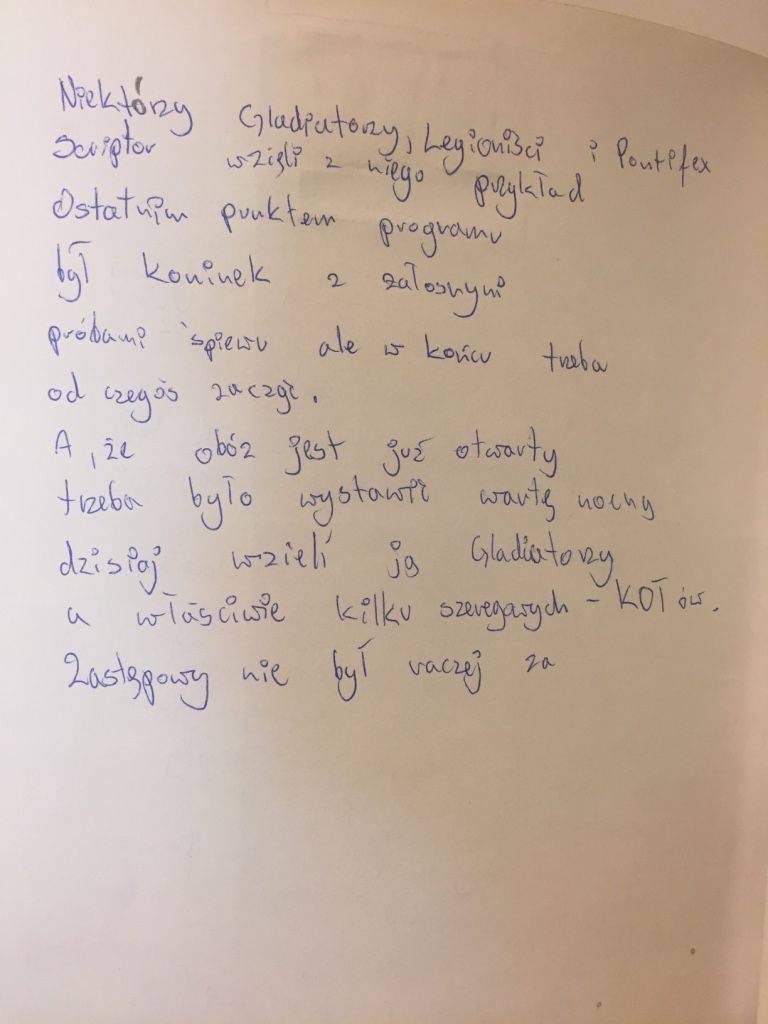 Niektórzy Gladiatorzy, Legioniści i Pontifex
Scriptor wzięli z niego przykład
Ostatnim punktem programu
był kominek z żałosnymi
próbami śpiewu ale w końcu trzeba
od czegoś zacząć.
A, że obóz jest już otwarty
trzeba było wystawić wartę nocną
dzisiaj wzieli ją Gladiatorzy
a właściwie kilku szeregawych - KOTów.
Zastępowy nie był raczej za